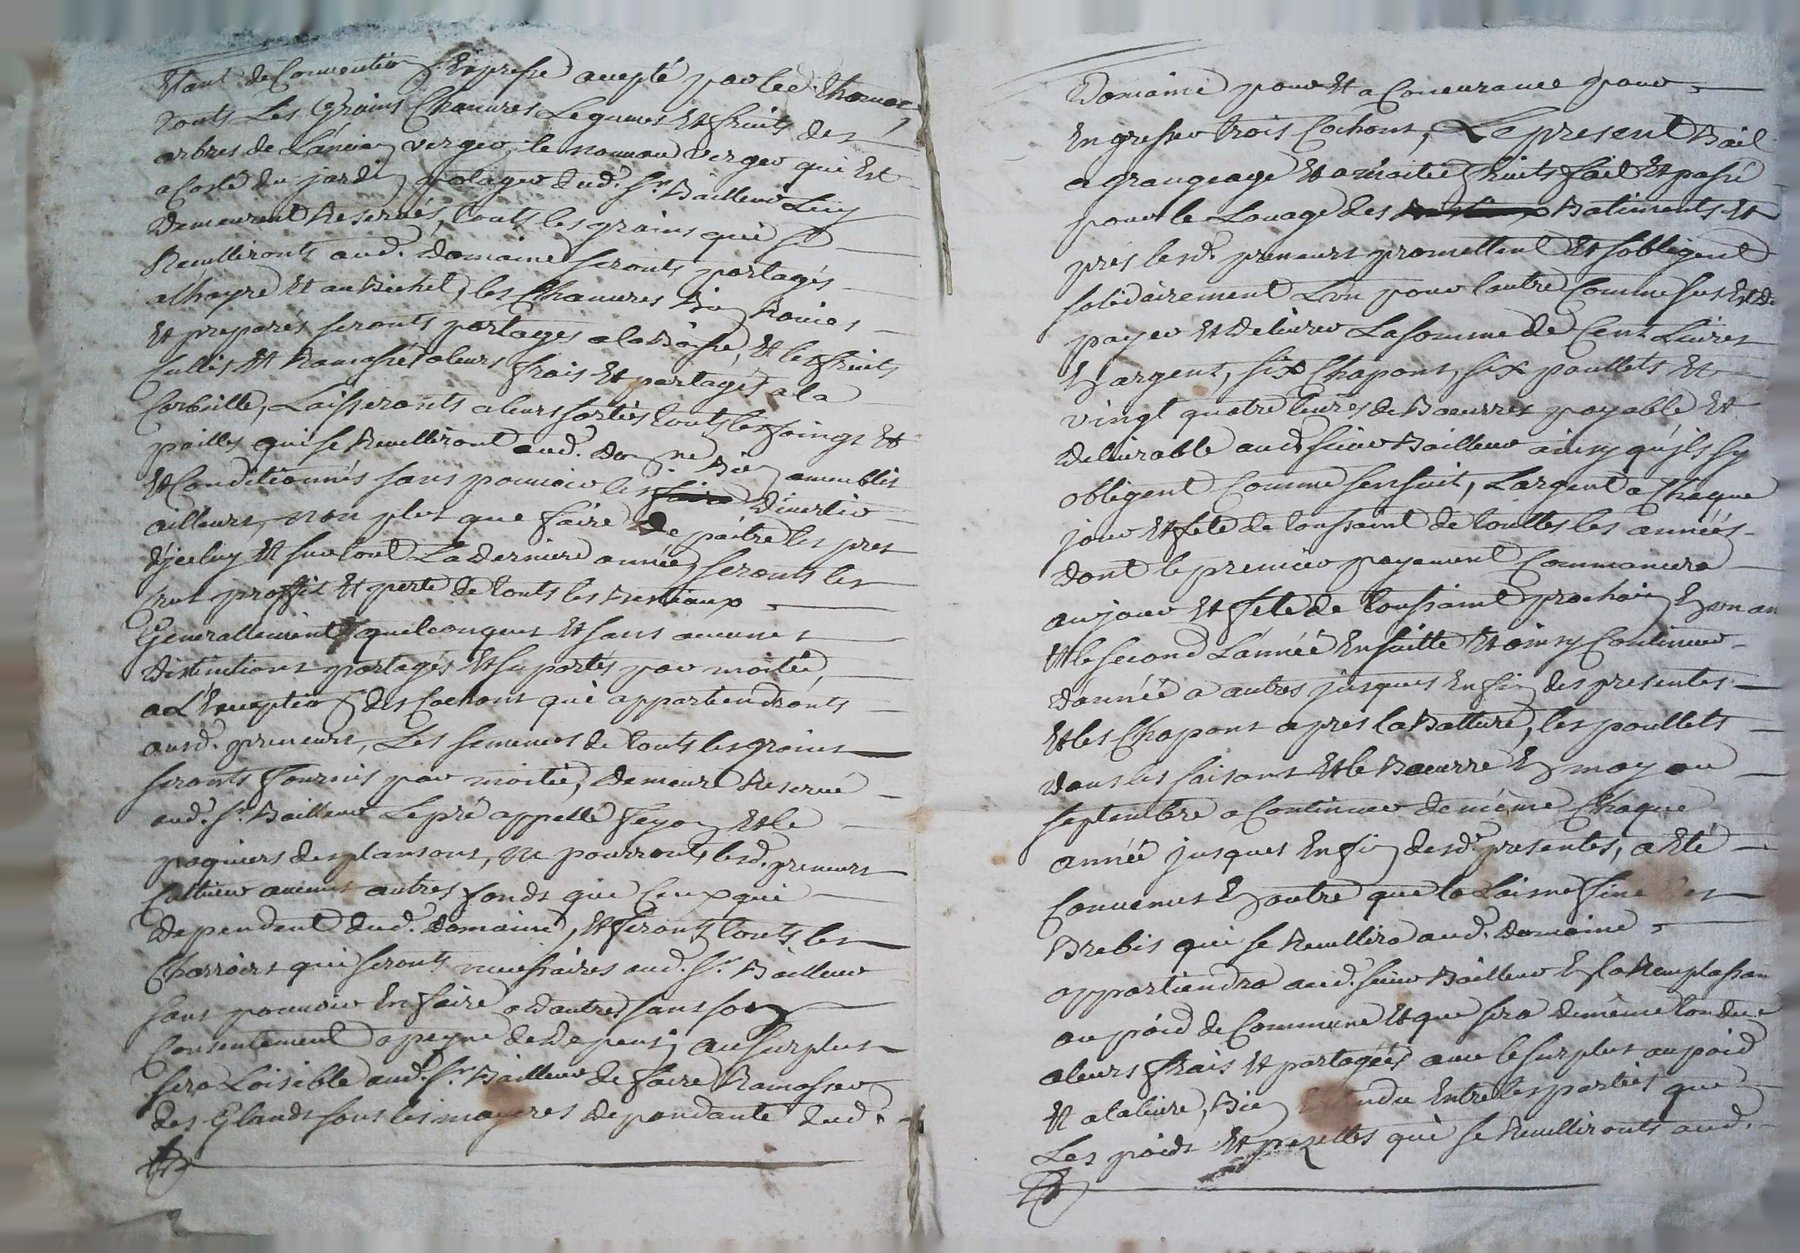 Etant de Convention Expresse accepté par led. Thomas
touts Les Grains Chanvres Legumes Et fruits des
arbres de L'ancien verger, le nouveau verger qui Est
a Costé du jardin potager dud. Sr. Bailleur Luy
demeurent Reservés, touts les grains qui se
Recuillironts aud. domaine seronts partagés
alhayre Et au Bichet, les Chanvres Bien
Et preparés seronts partagés a la Basse, Et les fruits
cullis Et Ramassé a leurs frais Et partagés a la
Corbeille, Laisseronts a leurs sorties touts les foings Et
pailles qui se Recuilliront aud. domaine Bien ameublis
Et Conditionnés sans pouvoir les divertir
ailleurs, non plus que faire de paitre les prés
d'jceluy Et surtout La derniere année, seronts les
crus proffit Et perte de touts les Bestiaux
Generallement quelconques Et sans aucunes
distinctions partagés Et suportés par moitié,
a L'Exception des Cochons qui appartiendronts
ausd. preneurs, Les semences de touts les grains
seronts fournis par moitié, demeure Reservé
aud. Sr. Bailleur Le pré appellé Feyon Et le
paquiers des plansons, ne pourronts lesd. preneurs
Cultiver aucuns autres fonds que Ceux qui
dependent dud. domaine, Et feronts touts les
Charrois qui seronts necessaires aud. Sr. Bailleur
sans pouvoir En faire a d'autres sans son
Consentement a peyne de depens, au surplus
sera Loisible aud. Sr. Bailleur de faire Ramasser
des Glands sous les mayeres dependante dud.
Domaine pour Et a Concurance pour
Engresser trois Cochons, Le present Bail
a grangeage Et a moitié fruits fait Et passé
pour le Louage des Batiments Et
prés lesd. preneurs promettent Et sobligent
solidairement L'un pour lautre Comme sus Est dit
payer Et delivrer La somme de Cent Livres
En argent, six Chapons, six poullets Et
vingt quatre livres de Boeurre payable Et
delivrable aud. sieur Bailleur ainsy qu'ils sy
obligent Comme sensuit, Largent a Chaque
jour Et fete de toussaint de touttes les années
dont le premier payement Commancera
au jour Et fete de toussaint prochain En un an
Et le second L'année Ensuitte Et ainsy Continuer
dannée a autres jusques Enfin des presentes
Et les Chapons apres la Batture, les poullets
dans les saisons Et le Boeurre En may ou
septembre a Continuer de même Chaque
année jusques Enfin desd. presentes, a Eté
Convenus En outre que la Laisne fine des
Brebis qui se Recuillira aud. domaine
appartiendra aud. sieur Bailleur En la Remplassan
au poid de Commune Et que sera de même tondue
a leurs frais Et partagées avec le surplus au poid
Et a la livre, Bien Entendu Entre les parties que
Les poids Et pezettes qui se Recuillironts aud.